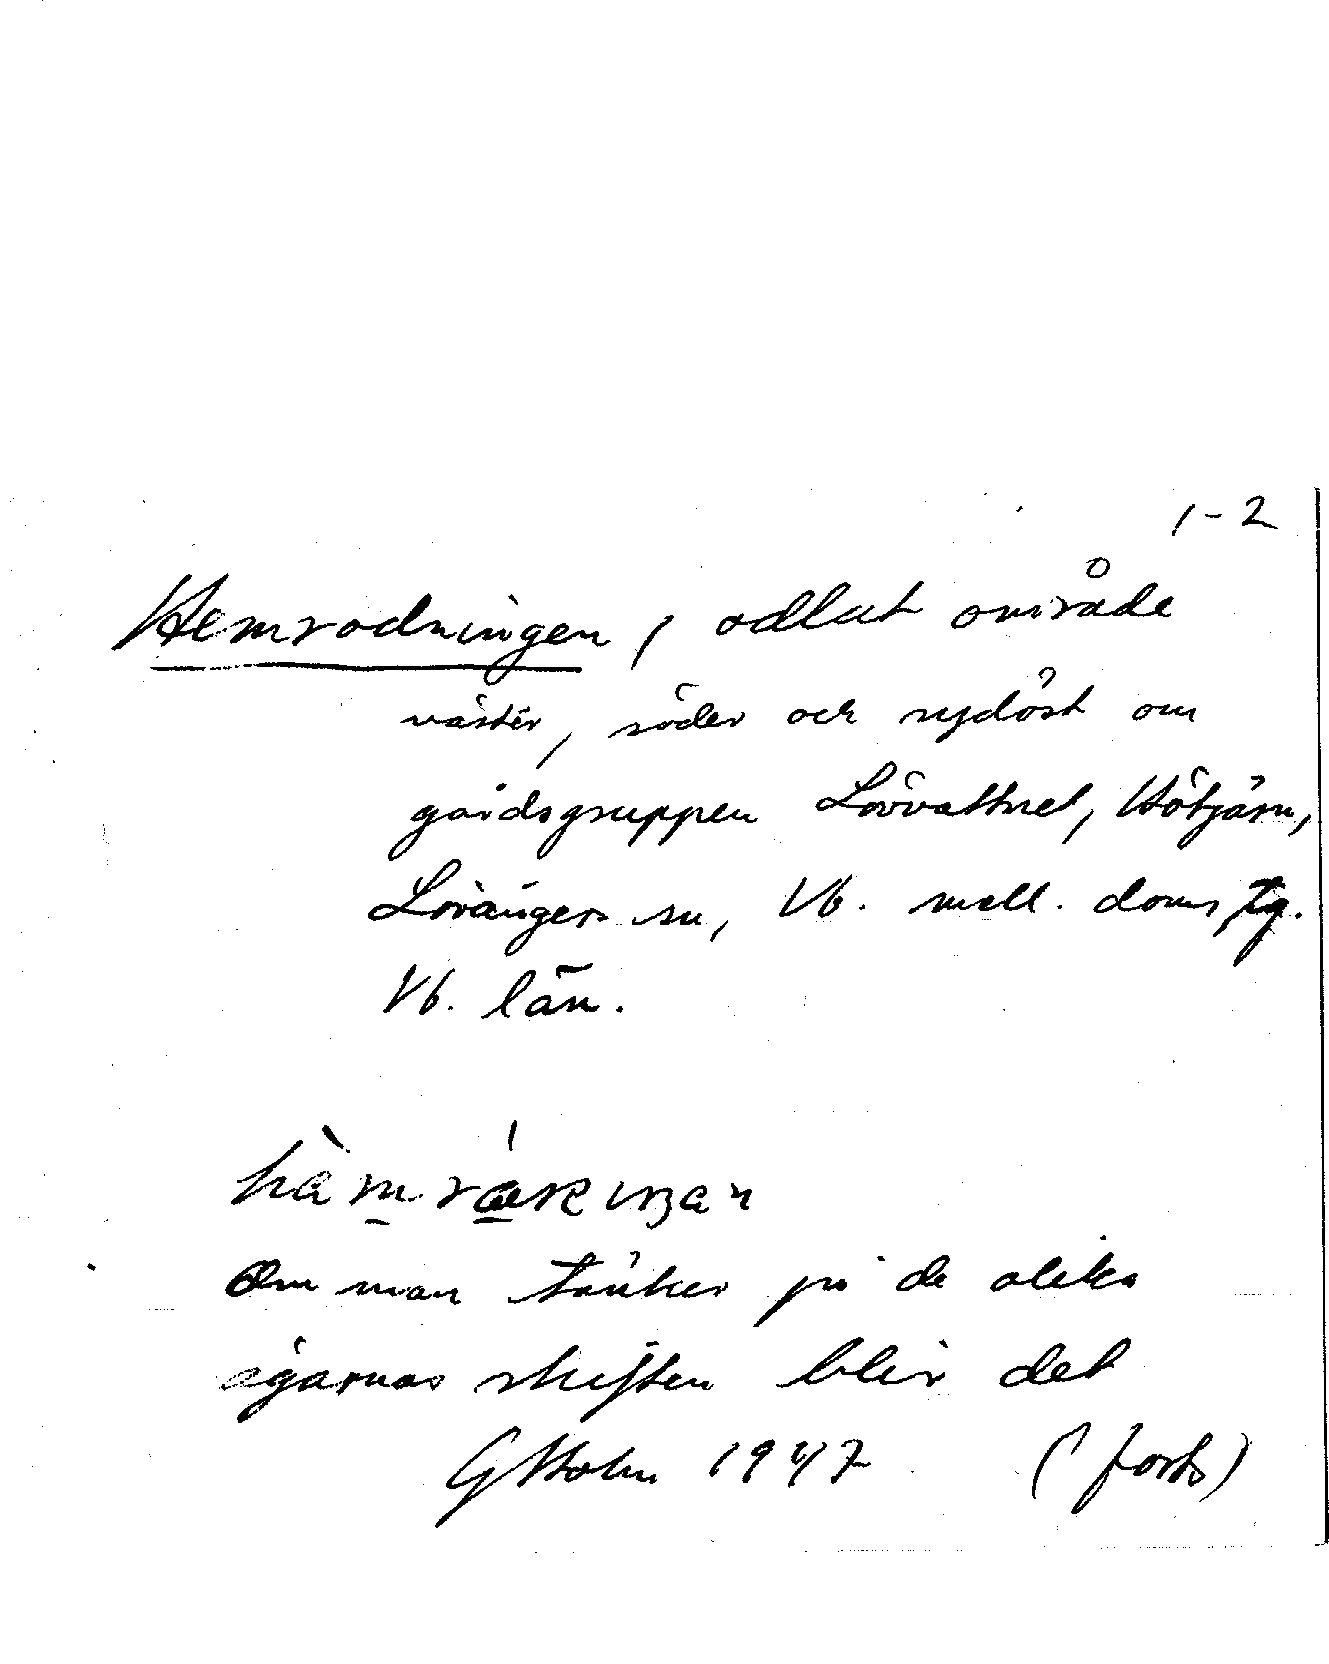 1-2
Hemrodningen, odlat område
väster, söder och sydöst om
gårdsgruppen Lövvattnet, Hötjärn,
Lövångers sn, Vb. mell. doms,tg.
Vb. län.
Om man tänker på de olika
ägarnas skiften blir det
G Holm 1947 (forts)